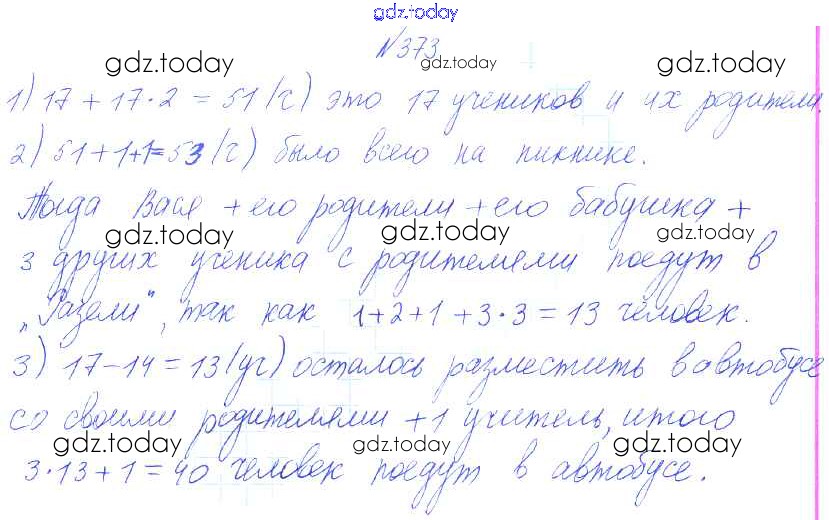 gdz.today
№373
gdz.today gdz.today gdz.today
1) 17 + 17·2 = 51 (ч) это 17 учеников и их родители.
2) 51+1+1=53 (ч) было всего на пикнике.
Тогда Вася + его родители + его бабушка +
gdz.today gdz.today gdz.today
3 других ученика с родителями поедут в
„Газели", так как 1+2+1+3·3=13 человек.
3) 17-14=13 (уч) осталось разместить в автобусе
со своими родителями +1 учитель, итого
gdz.today gdz.today gdz.today
3·13+1=40 человек поедут в автобусе.